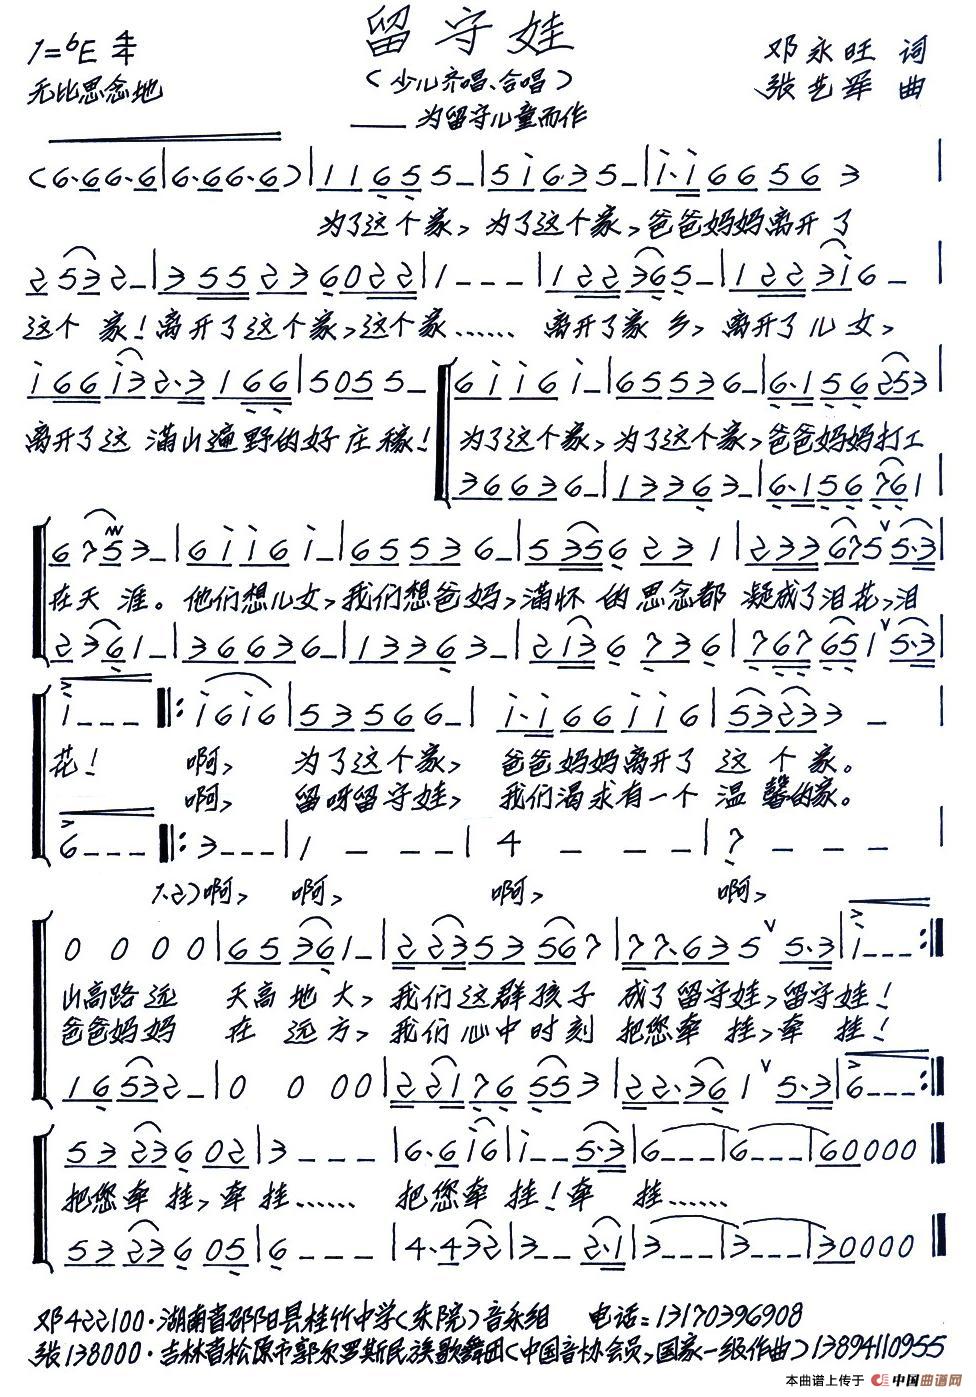 留守娃
1=ᵇE 4/4
邓永旺 词
无比思念地
(少儿齐唱、合唱)
张艺军 曲
——为留守儿童而作
(6·66·6|6·66·6)|11655_|5i635_|i·i6656 3|
为了这个家,为了这个家,爸爸妈妈离开了
2532_|355236022|1---|122365_|1223i6_|
这个 家!离开了这个家,这个家…… 离开了家 乡, 离开了儿女,
i66i32·3166|50555_|6ii6i_|65536_|6·156253|
离开了这 满山遍野的好庄稼! 为了这个家,为了这个家,爸爸妈妈打工
36636_|13363_|6·156761|
6753_|6ii6i_|65536_|53562 31|2336755·3|
在天 涯。他们想儿女,我们想爸妈,满怀 的思念都 凝成了泪花,泪
2361_|36636_|13363_|21367 36|7676515·3|
i---|:i6i6|535666_|i·i66ii6|532333_|
花! 啊, 为了这个家, 爸爸妈妈离开了 这 个 家。
啊, 留呀留守娃, 我们渴求有一个 温 馨的家。
6---|:3---|1---|4---|7---|
1.2)啊, 啊, 啊, 啊,
0000|65361_|22353567|77·63555·3|i---:|
山高路远 天高地大,我们这群孩子 成了留守娃,留守娃!
爸爸妈妈 在 远方,我们心中时刻 把您牵 挂,牵 挂!
16532_|0000|221765 53|22·3615·3|6---:|
5323602|3---|6·6i6|i__5·3|6---|6---|60000‖
把您牵 挂,牵 挂…… 把您牵 挂!牵 挂……
5323605|6---|4·432|3__2·1|3---|3---|30000‖
邓422100·湖南省邵阳县桂竹中学(东院)音永组 电话:13170396908
张138000·吉林省松原市郭尔罗斯民族歌舞团(中国音协会员,国家一级作曲)13894110955
本曲谱上传于 中国曲谱网